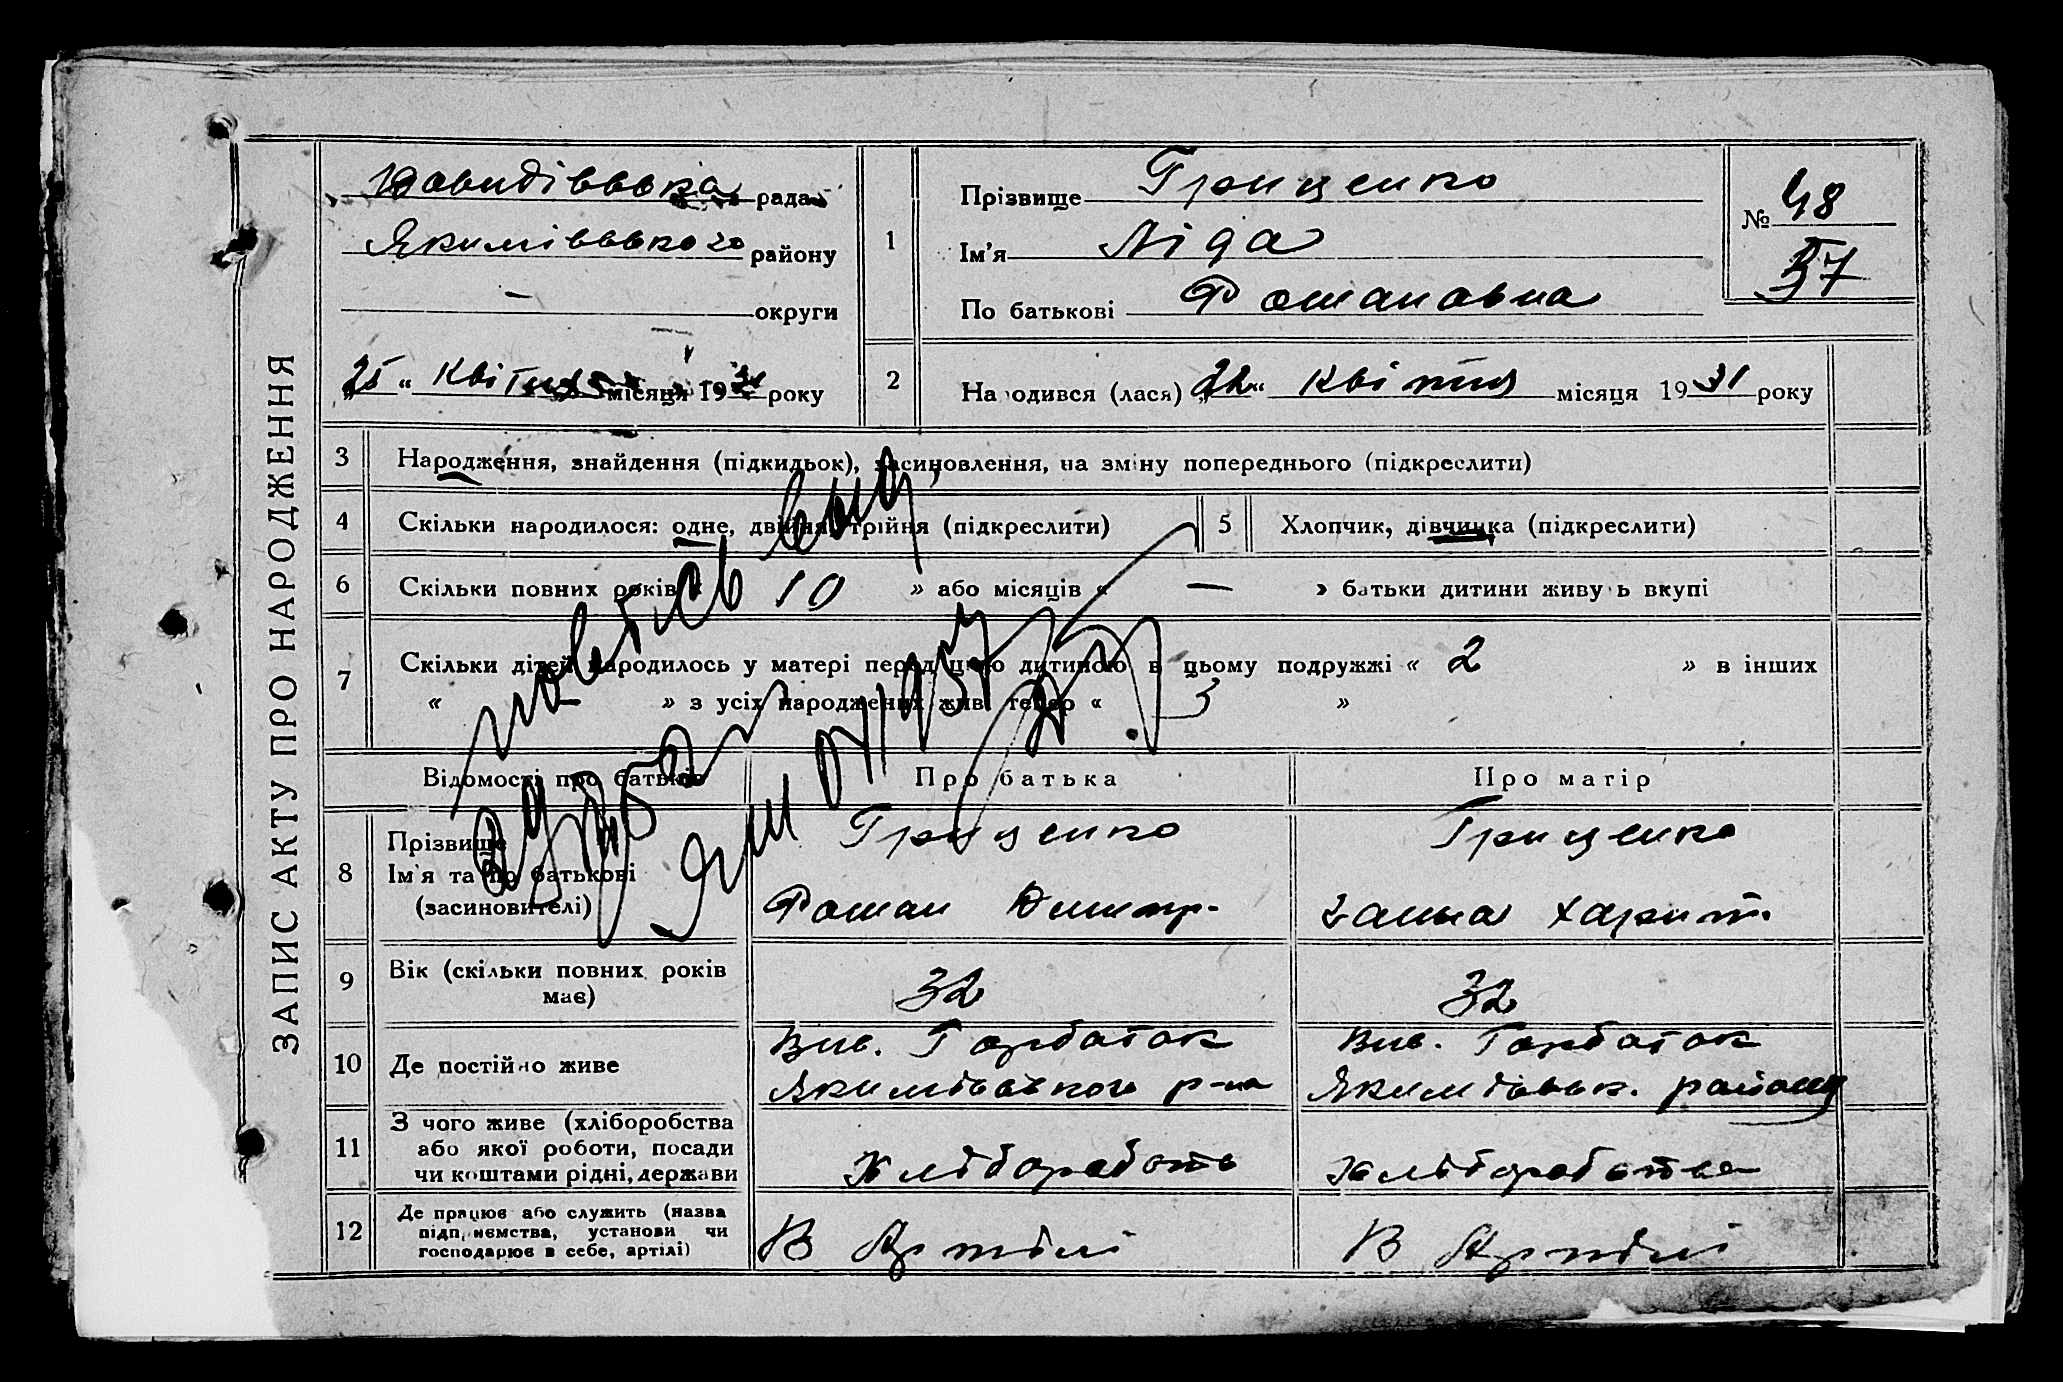 ЗАПИС АКТУ ПРО НАРОДЖЕННЯ
Давидівська рада
Якимівського району
— округи
„25“ Квітня місяця 1931 року
1
Прізвище Гриценко
Ім'я Ліда
По батькові Романовна
№ 48
37
2
Народився (лася) „22“ Квітня місяця 1931 року
3 Народження, знайдення (підкидьок), засиновлення, на зміну попереднього (підкреслити)
4 Скільки народилося: одне, двійня, трійня (підкреслити)
5 Хлопчик, дівчинка (підкреслити)
6 Скільки повних років « 10 » або місяців « — » батьки дитини живуть вкупі
7 Скільки дітей народилось у матері перед цією дитиною в цьому подружжі « 2 » в інших
« » з усіх народжених живі тепер « 3 »
Відомості про батьків
Про батька
Про матір
8 Прізвище
Ім'я та по батькові
(засиновителі)
Гриценко
Роман Дмитр.
Гриценко
Ганна Харит.
9 Вік (скільки повних років
має)
32
32
10 Де постійно живе
Вис. Горбаток
Якимівського р-на
Вис. Горбаток
Якимівськ. району
11 З чого живе (хліборобства
або якої роботи, посади
чи коштами рідні, держави
Хліборобств
хліборобства
12 Де працює або служить (назва
підприємства, установи чи
господарює в себе, артілі)
В Артілі
В Артілі
1937